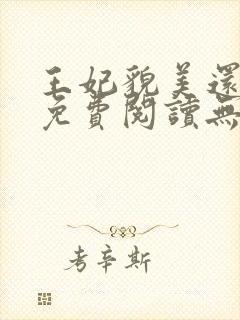 王妃貌美還
免費閱讀無
考辛斯